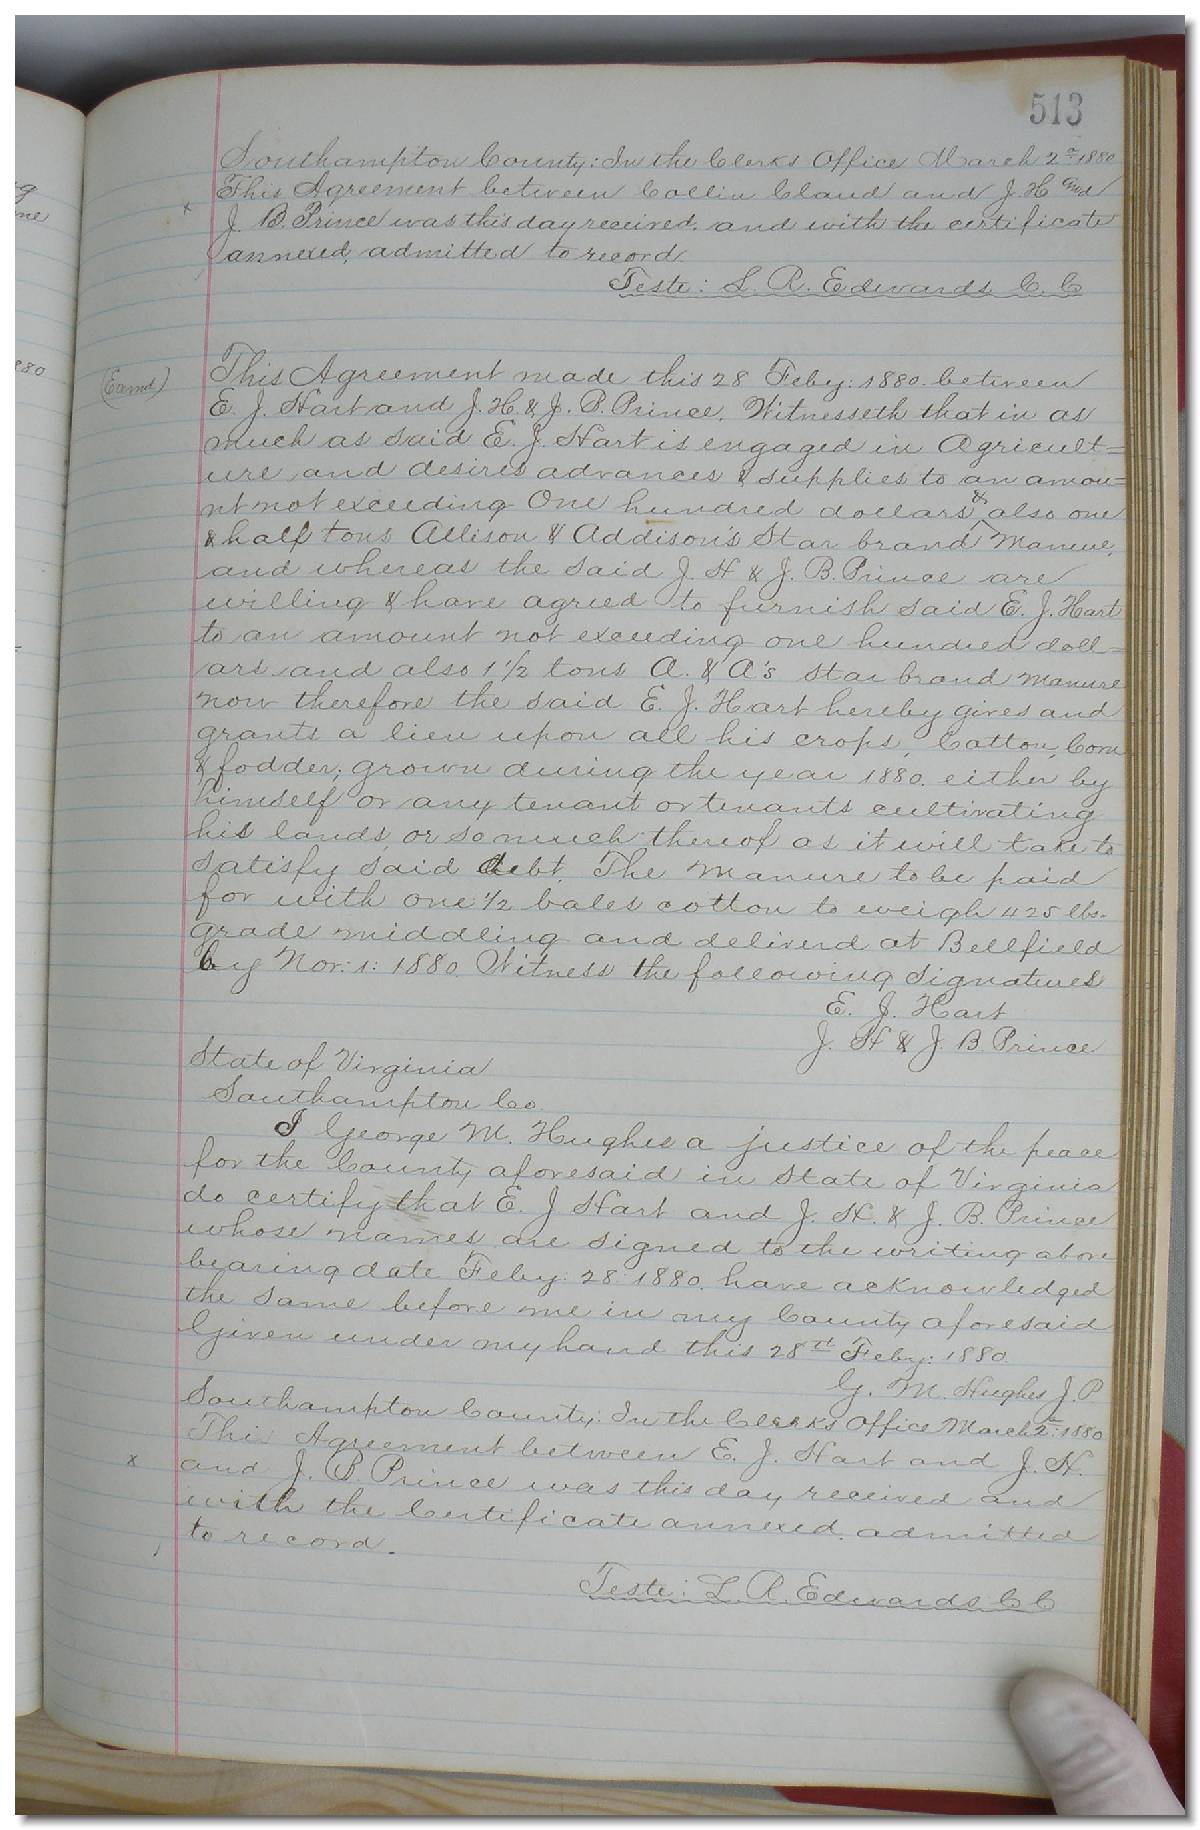 513
Southampton County: In the Clerks Office March 2nd 1880
This Agreement between Collin Claud and J. H and
x J. B. Prince was this day received, and with the certificate
annexed, admitted to record
Teste: L. R. Edwards C. C
(Examd)
This Agreement made this 28 Feby: 1880. between
E. J. Hart and J. H. & J. B. Prince. Witnesseth that in as
much as said E. J. Hart is engaged in Agricult=
ure and desires advances & supplies to an amou=
nt not exceeding One hundred dollars & also one
& half tons Allison & Addison's Star brand Manure,
and whereas the said J. H & J. B. Prince are
willing & have agreed to furnish said E. J. Hart
to an amount not exceeding one hundred doll=
ars and also 1 1/2 tons A. & A's star brand manure
now therefore the said E. J. Hart hereby gives and
grants a lien upon all his crops, Cotton, Corn
& fodder, grown during the year 1880. either by
himself or any tenant or tenants cultivating
his lands, or so much thereof as it will take to
satisfy said debt. The manure to be paid
for with one 1/2 bales cotton to weigh 425 lbs.
grade middling and deliverd at Bellfield
by Nov: 1: 1880 Witness the following signatures
E. J. Hart
J. H & J. B. Prince
State of Virginia
Southampton Co.
I George M. Hughes a justice of the peace
for the County aforesaid in State of Virginia
do certify that E. J Hart and J. H. & J. B. Prince
whose names are signed to the writing above
bearing date Feby: 28: 1880. have acknowledged
the same before me in my County aforesaid
Given under my hand this 28th Feby: 1880.
G. M. Hughes J. P.
Southampton County: In the Clerks Office March 2nd: 1880
This Agreement between E. J. Hart and J. H.
x and J. B. Prince was this day received and
with the Certificate annexed, admitted
to record.
Teste: L. R. Edwards C C